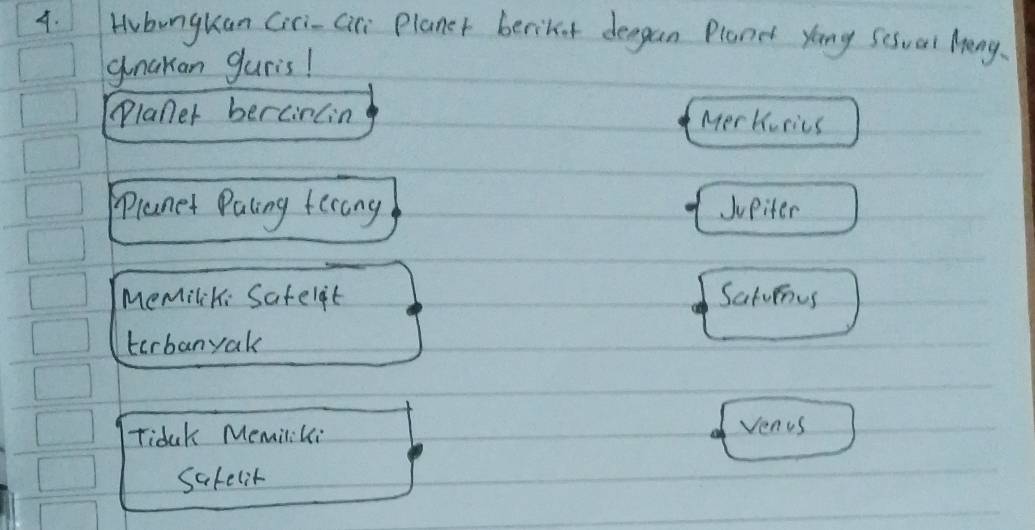 4. Hubungkan Ciri-Ciri Planet berikut dengan Planet yang sesuai Meng-
gunakan guris!
Planet bercincin
Merkurius
Planet Paling terang
Jupiter
Memiliki Satelit
terbanyak
Saturnus
Tiduk Memiliki
Satelit
Venus